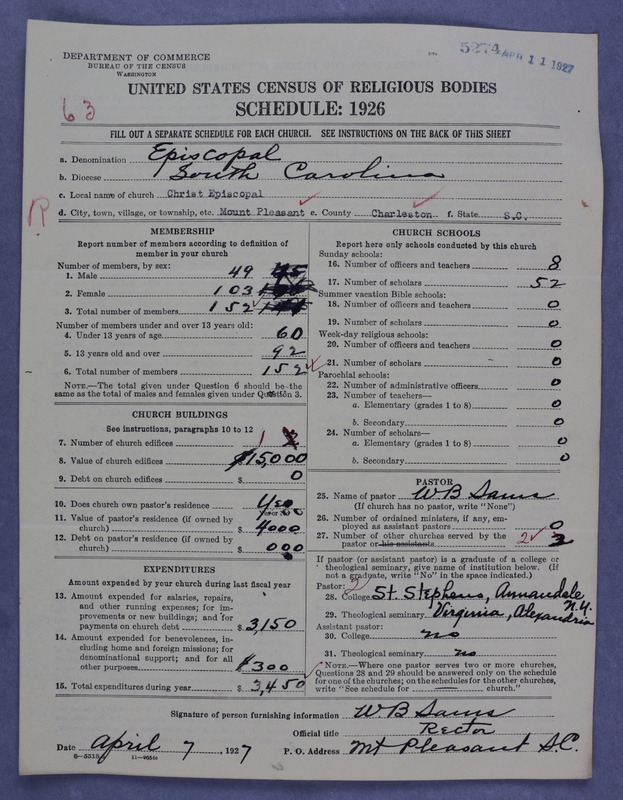 DEPARTMENT OF COMMERCE
BUREAU OF THE CENSUS
WASHINGTON
5274 APR 11 1927
UNITED STATES CENSUS OF RELIGIOUS BODIES
SCHEDULE: 1926
63
FILL OUT A SEPARATE SCHEDULE FOR EACH CHURCH. SEE INSTRUCTIONS ON THE BACK OF THIS SHEET
a. Denomination Episcopal
b. Diocese South Carolina
c. Local name of church Christ Episcopal
d. City, town, village, or township, etc. Mount Pleasant e. County Charleston f. State S.C.
R
MEMBERSHIP
Report number of members according to definition of
member in your church
Number of members, by sex:
1. Male 49 45
2. Female 103
3. Total number of members 152
Number of members under and over 13 years old:
4. Under 13 years of age 60
5. 13 years old and over 92
6. Total number of members 152
NOTE.—The total given under Question 6 should be the
same as the total of males and females given under Question 3.
CHURCH BUILDINGS
See instructions, paragraphs 10 to 12
7. Number of church edifices 1
8. Value of church edifices $15,000
9. Debt on church edifices $ 0
10. Does church own pastor's residence Yes
(Yes or No)
11. Value of pastor's residence (if owned by
church) $ 4000
12. Debt on pastor's residence (if owned by
church) $ 000
EXPENDITURES
Amount expended by your church during last fiscal year
13. Amount expended for salaries, repairs,
and other running expenses; for im-
provements or new buildings; and for
payments on church debt $ 3,150
14. Amount expended for benevolences, in-
cluding home and foreign missions; for
denominational support; and for all
other purposes $ 300
15. Total expenditures during year $ 3,450
CHURCH SCHOOLS
Report here only schools conducted by this church
Sunday schools:
16. Number of officers and teachers 8
17. Number of scholars 52
Summer vacation Bible schools:
18. Number of officers and teachers 0
19. Number of scholars 0
Week-day religious schools:
20. Number of officers and teachers 0
21. Number of scholars 0
Parochial schools:
22. Number of administrative officers 0
23. Number of teachers—
a. Elementary (grades 1 to 8) 0
b. Secondary 0
24. Number of scholars—
a. Elementary (grades 1 to 8) 0
b. Secondary 0
PASTOR
25. Name of pastor W B Sams
(If church has no pastor, write "None")
26. Number of ordained ministers, if any, em-
ployed as assistant pastors 0
27. Number of other churches served by the
pastor or his assistants 2 3
If pastor (or assistant pastor) is a graduate of a college or
theological seminary, give name of institution below. (If
not a graduate, write "No" in the space indicated.)
Pastor:
28. College St. Stephens, Annandale N.Y.
29. Theological seminary Virginia, Alexandria
Assistant pastor:
30. College no
31. Theological seminary no
NOTE.—Where one pastor serves two or more churches,
Questions 28 and 29 should be answered only on the schedule
for one of the churches; on the schedules for the other churches,
write "See schedule for church."
Signature of person furnishing information W B Sams
Official title Rector
Date April 7, 1927 P. O. Address Mt Pleasant S.C.
8-5518 11-9654